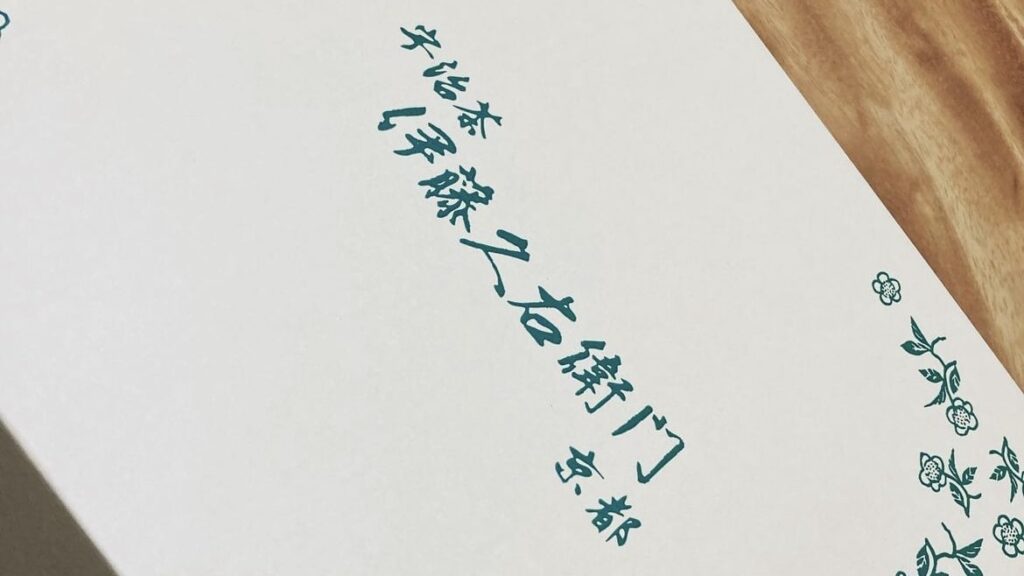 宇治茶
伊藤久右衛門
京都